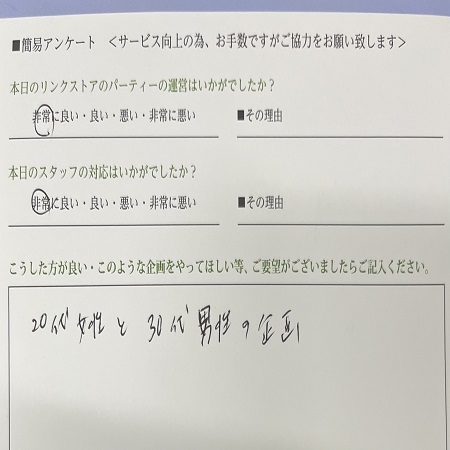 ■簡易アンケート <サービス向上の為、お手数ですがご協力をお願い致します>
本日のリンクストアのパーティーの運営はいかがでしたか？
非常に良い・良い・悪い・非常に悪い ■その理由
本日のスタッフの対応はいかがでしたか？
非常に良い・良い・悪い・非常に悪い ■その理由
こうした方が良い・このような企画をやってほしい等、ご要望がございましたらご記入ください。
20代女性と30代男性の企画